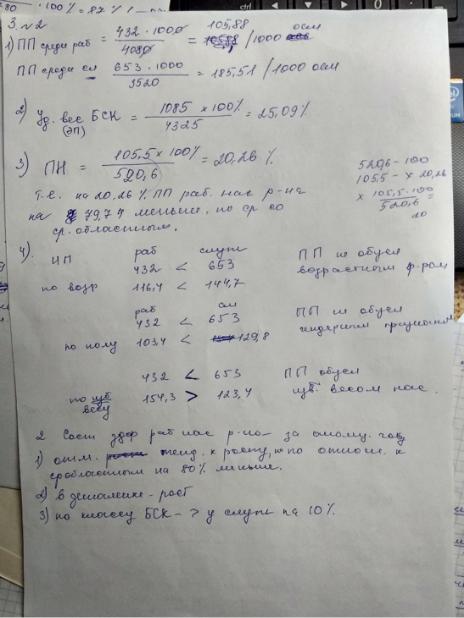 80 · 100% = 82%
3. №2
1) ПП среди раб = 432 · 1000 / 4080 = 105,88 /1000 осм
ПП среди сл 653 · 1000 / 3520 = 185,51 /1000 осм
2) Уд. вес БСК = 1085 × 100% / 4325 = 25,09%
(ЭП)
3) ПН = 105,5 × 100% / 520,6 = 20,26 %.
520,6 - 100
105,5 - x 20,26
x 105,5 · 100 / 520,6 =
20
Т.е. на 20,26% ПП раб. нас р-на
на 79,74 меньше, по ср со
ср. областным.
4).
раб служ
ИП 432 < 653 ПП не обусл
по возр 116,4 < 144,7 возрастным ф-ром
раб сл
432 < 653 ПП не обусл
по полу 103,4 < 129,8
432 < 653 ПП обусл
по уд. весу 154,3 > 123,4 уд. весом нас.
2 Сост здор раб нас р-на за год
1) отм. тенд. к росту, но по отнош. к
среобластным на 80% меньше.
2) в динамике - рост
3) по классу БСК - > у служ на 10%.